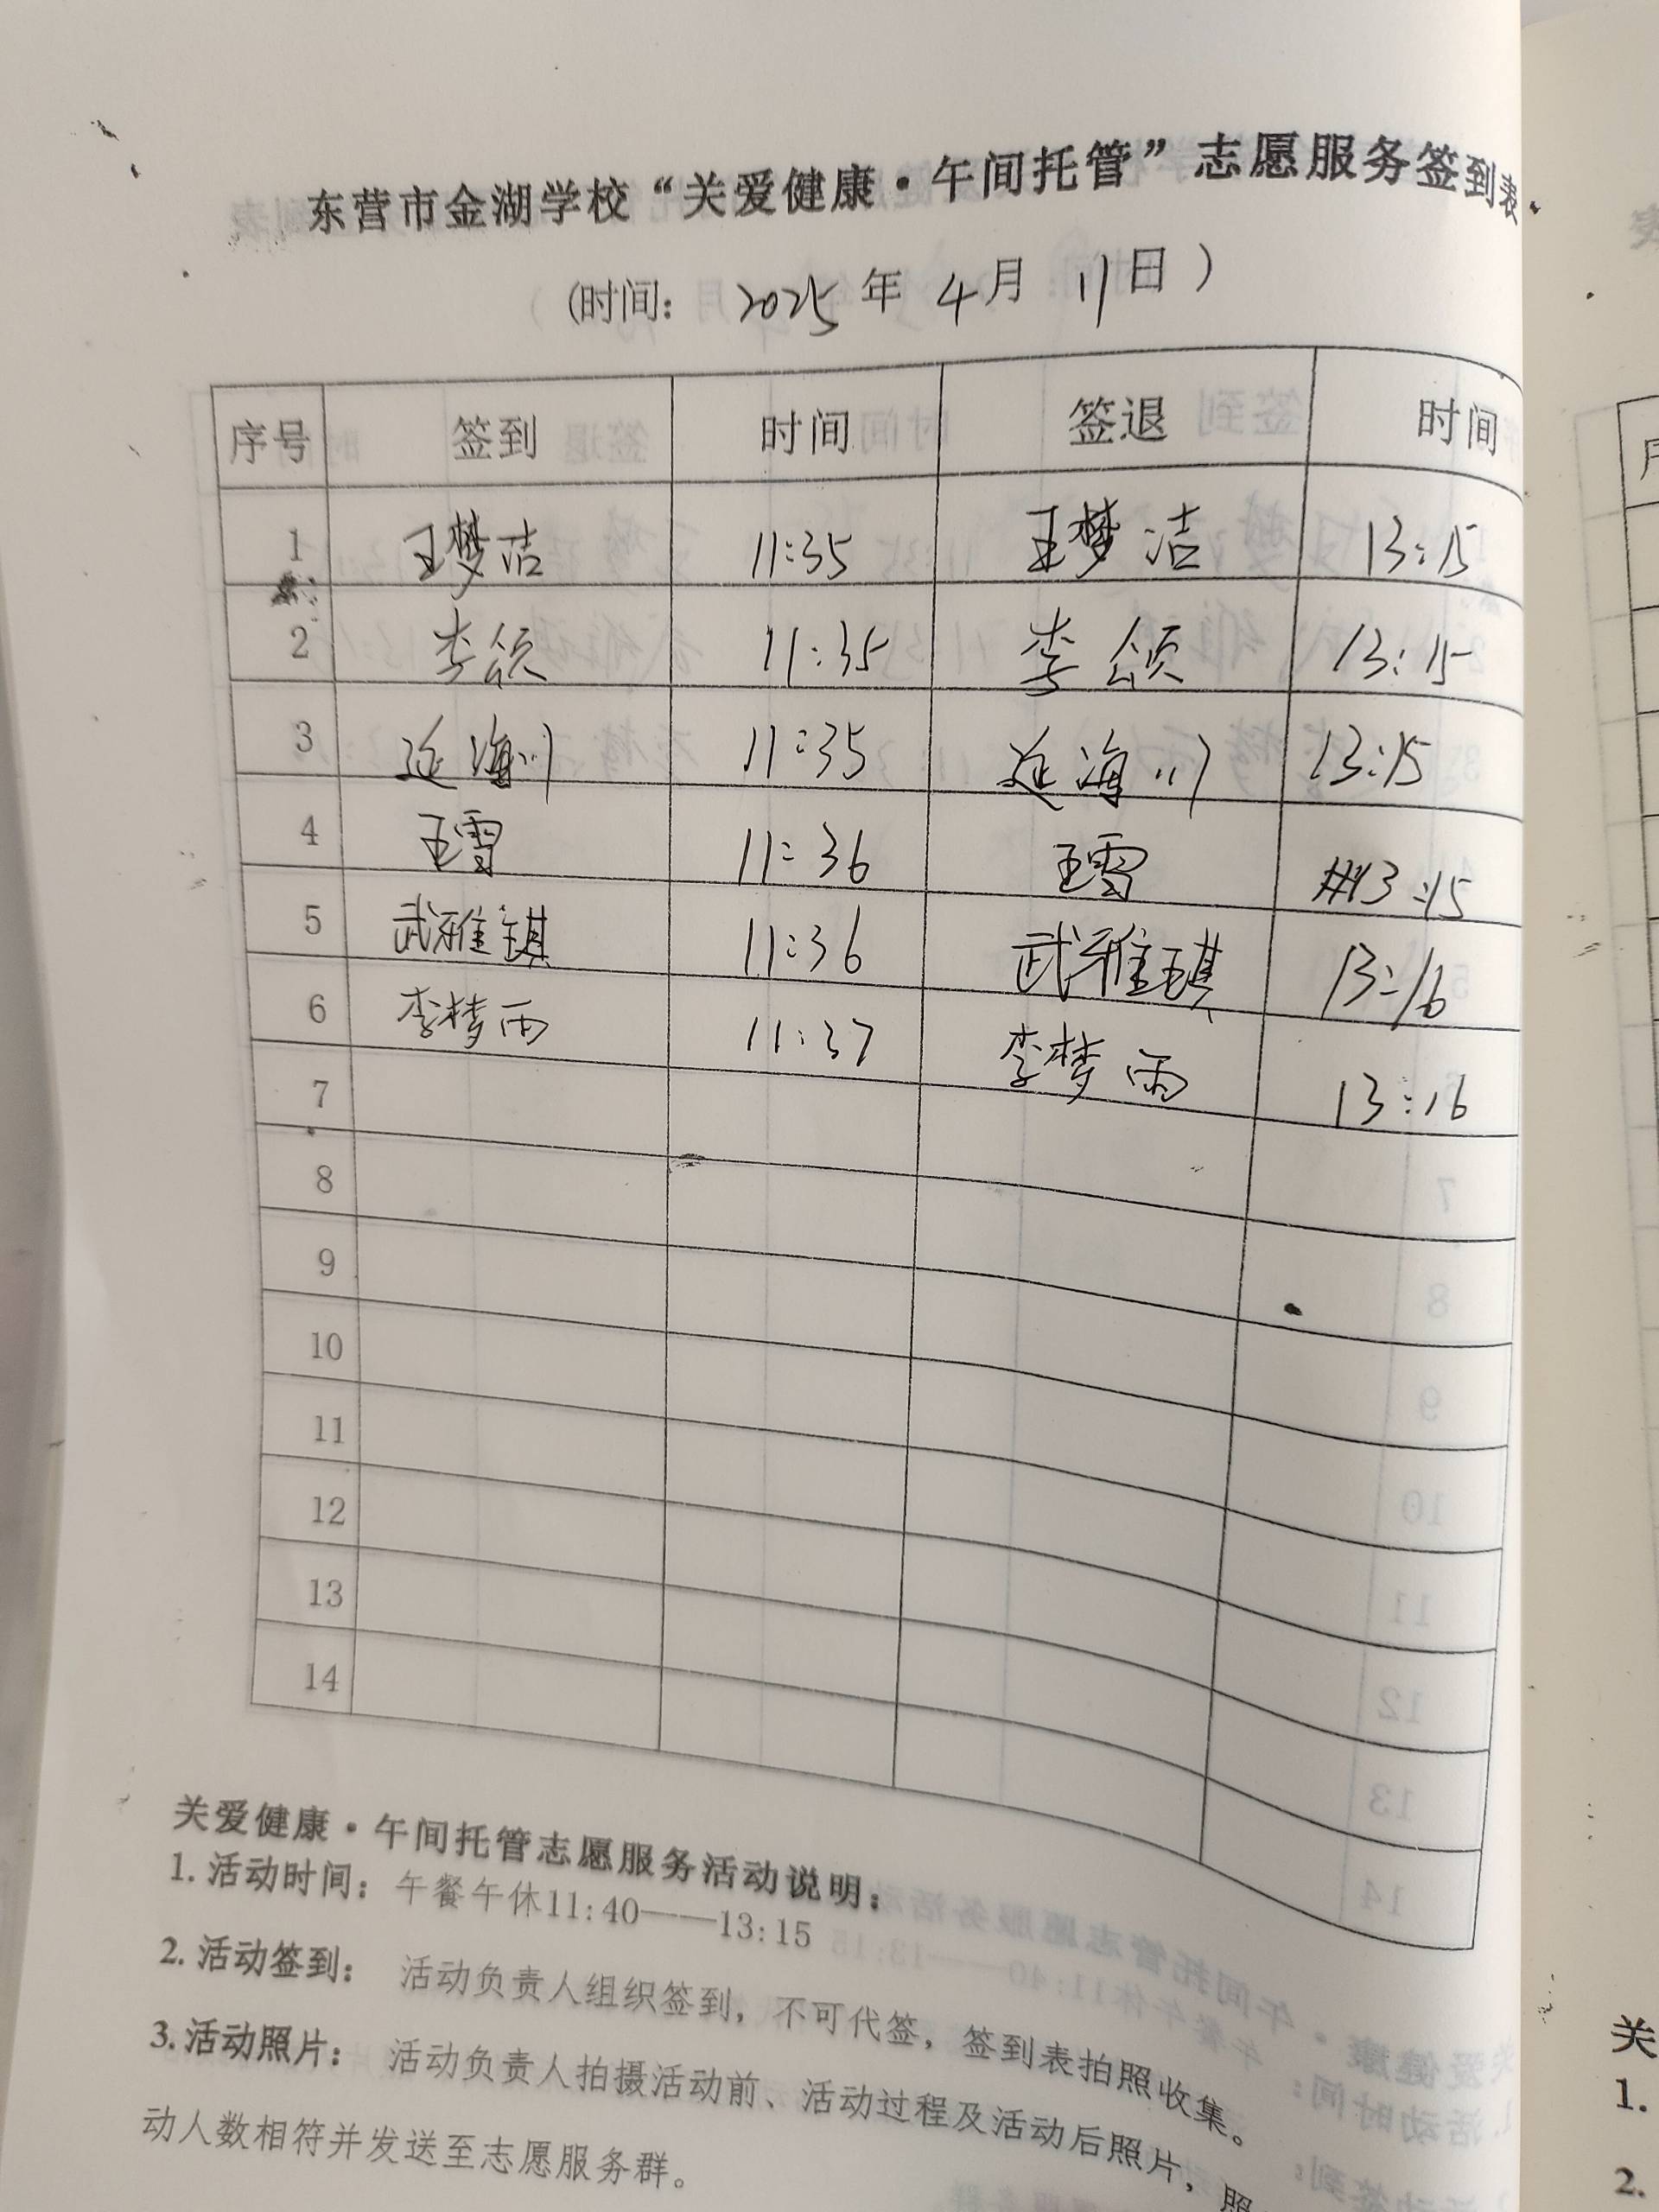 东营市金湖学校“关爱健康·午间托管”志愿服务签到表
(时间: 2025 年 4 月 11 日 )
序号 签到 时间 签退 时间
1 王梦洁 11:35 王梦洁 13:15
2 李颂 11:35 李颂 13:15
3 延海川 11:35 延海川 13:15
4 王雪 11:36 王雪 13:15
5 武雅琪 11:36 武雅琪 13:16
6 李梦雨 11:37 李梦雨 13:16
7
8
9
10
11
12
13
14
关爱健康·午间托管志愿服务活动说明:
1. 活动时间: 午餐午休11:40——13:15
2. 活动签到: 活动负责人组织签到，不可代签，签到表拍照收集。
3. 活动照片: 活动负责人拍摄活动前、活动过程及活动后照片，照
动人数相符并发送至志愿服务群。
关
1.
2.